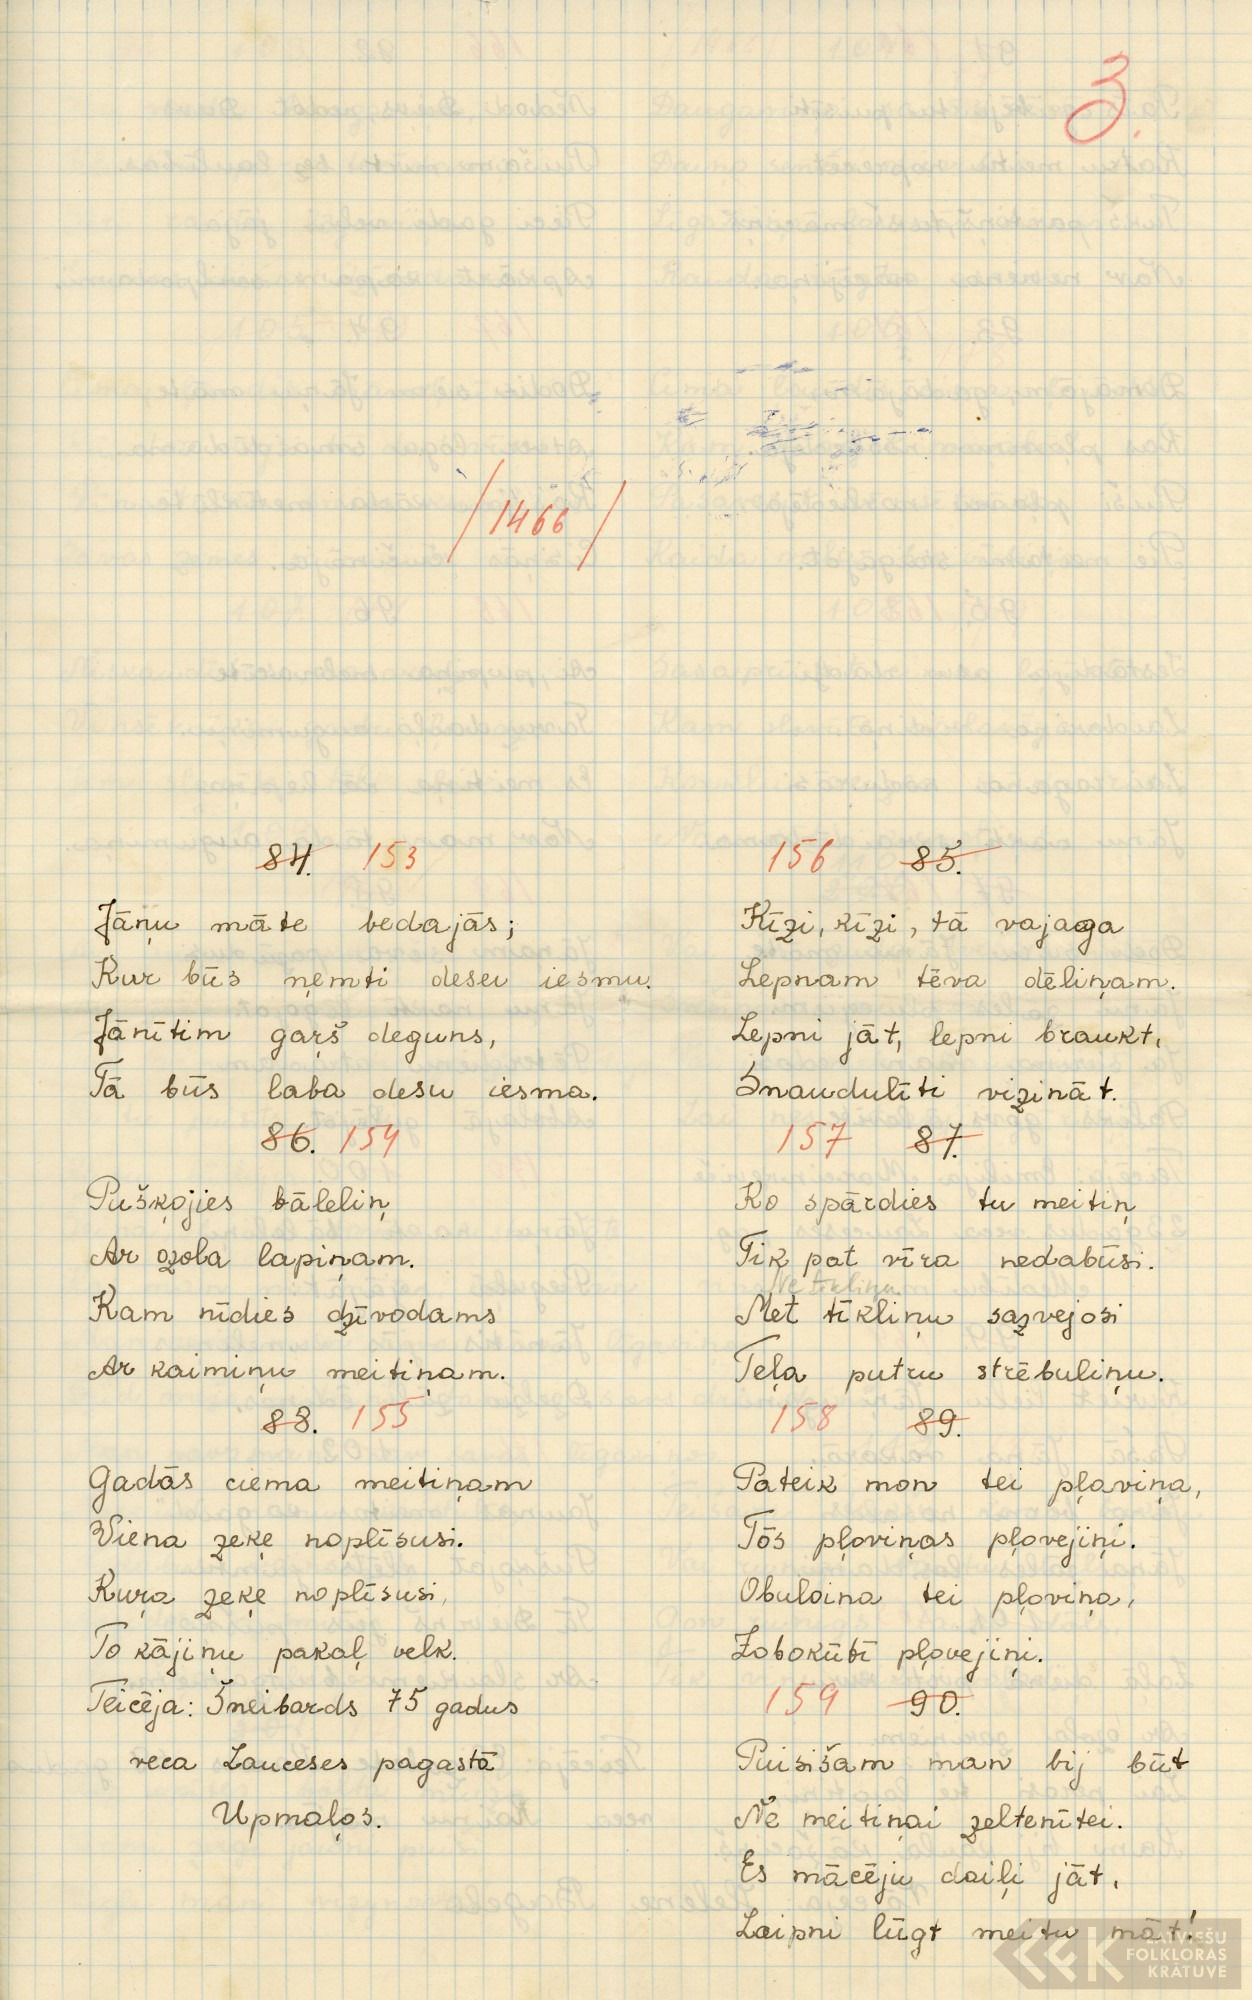 3.
/1466/
84. 153
Jāņu māte bedajās;
Kur būs ņemti desu iesmu.
Jānītim gaŗš deguns,
Tā būs laba desu iesma.
86. 154
Puškojies bāleliņ
Ar ozola lapiņam.
Kam nīdies dzīvodams
Ar kaimiņu meitiņam.
88. 155
Gadās ciema meitiņam
Viena zeķe noplīsusi.
Kuŗa zeķe noplīsusi,
To kājiņu pakaļ velk.
Teicēja: Šneibards 75 gadus
veca Lauceses pagastā
Upmaļos.
156 85.
Kīzi, kīzi, tā vajaga
Lepnam tēva dēliņam.
Lepni jāt, lepni braukt,
Snaudulīti vizināt.
157 87.
Ko spārdies tu meitiņ
Tik pat vīra nedabūsi.
Met tīkliņu sazvejosi
Teļa putru strēbuliņu.
158 89.
Pateik mon tei pļaviņa,
Tōs pļoviņas pļovejiņi.
Obuloina tei pļoviņa,
Zobokūtī pļovejiņi.
159 90.
Puisišam man bij būt
Ne meitiņai zeltenītei.
Es mācēju daiļi jāt,
Laipni lūgt meitu māt!
LATVIEŠU
FOLKLORAS
KRĀTUVE